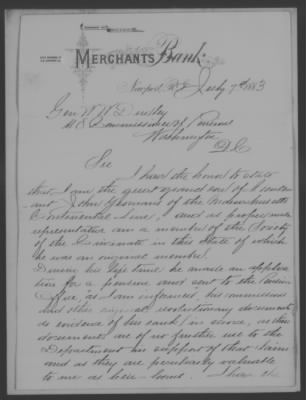 MERCHANTS Bank.
Newport, R.I. July 7th 1883
Gen W. W. Dudley
U.S. Commissioner of Pensions
Washington
D.C.
Sir
I have the honor to state
that I am the great grand son of Lieutenant
John of the Massachusetts
Continental Line, and as proper
representative am a member of the Society
of the Cincinnati in this State of which
he was an original member.
During his life time he made an application
for a pension and sent to the Pension
Office, as I am informed, his commissions
and other revolutionary documents
as evidence of his rank in service, as these
documents are of no further use to the
Department in support of that claim
and as they are peculiarly valuable
to me as heir looms. I have